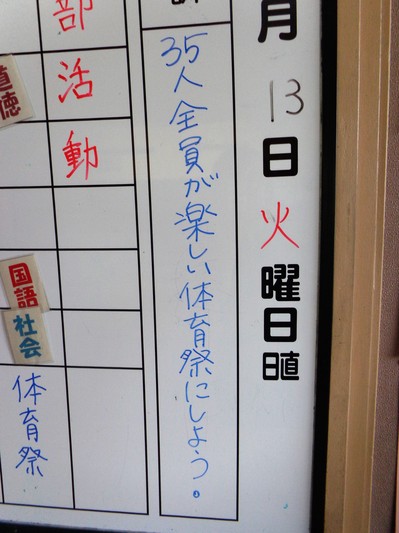 月13日火曜日
35人全員が楽しい体育祭にしよう。
部活動
道徳
国語
社会
体育祭